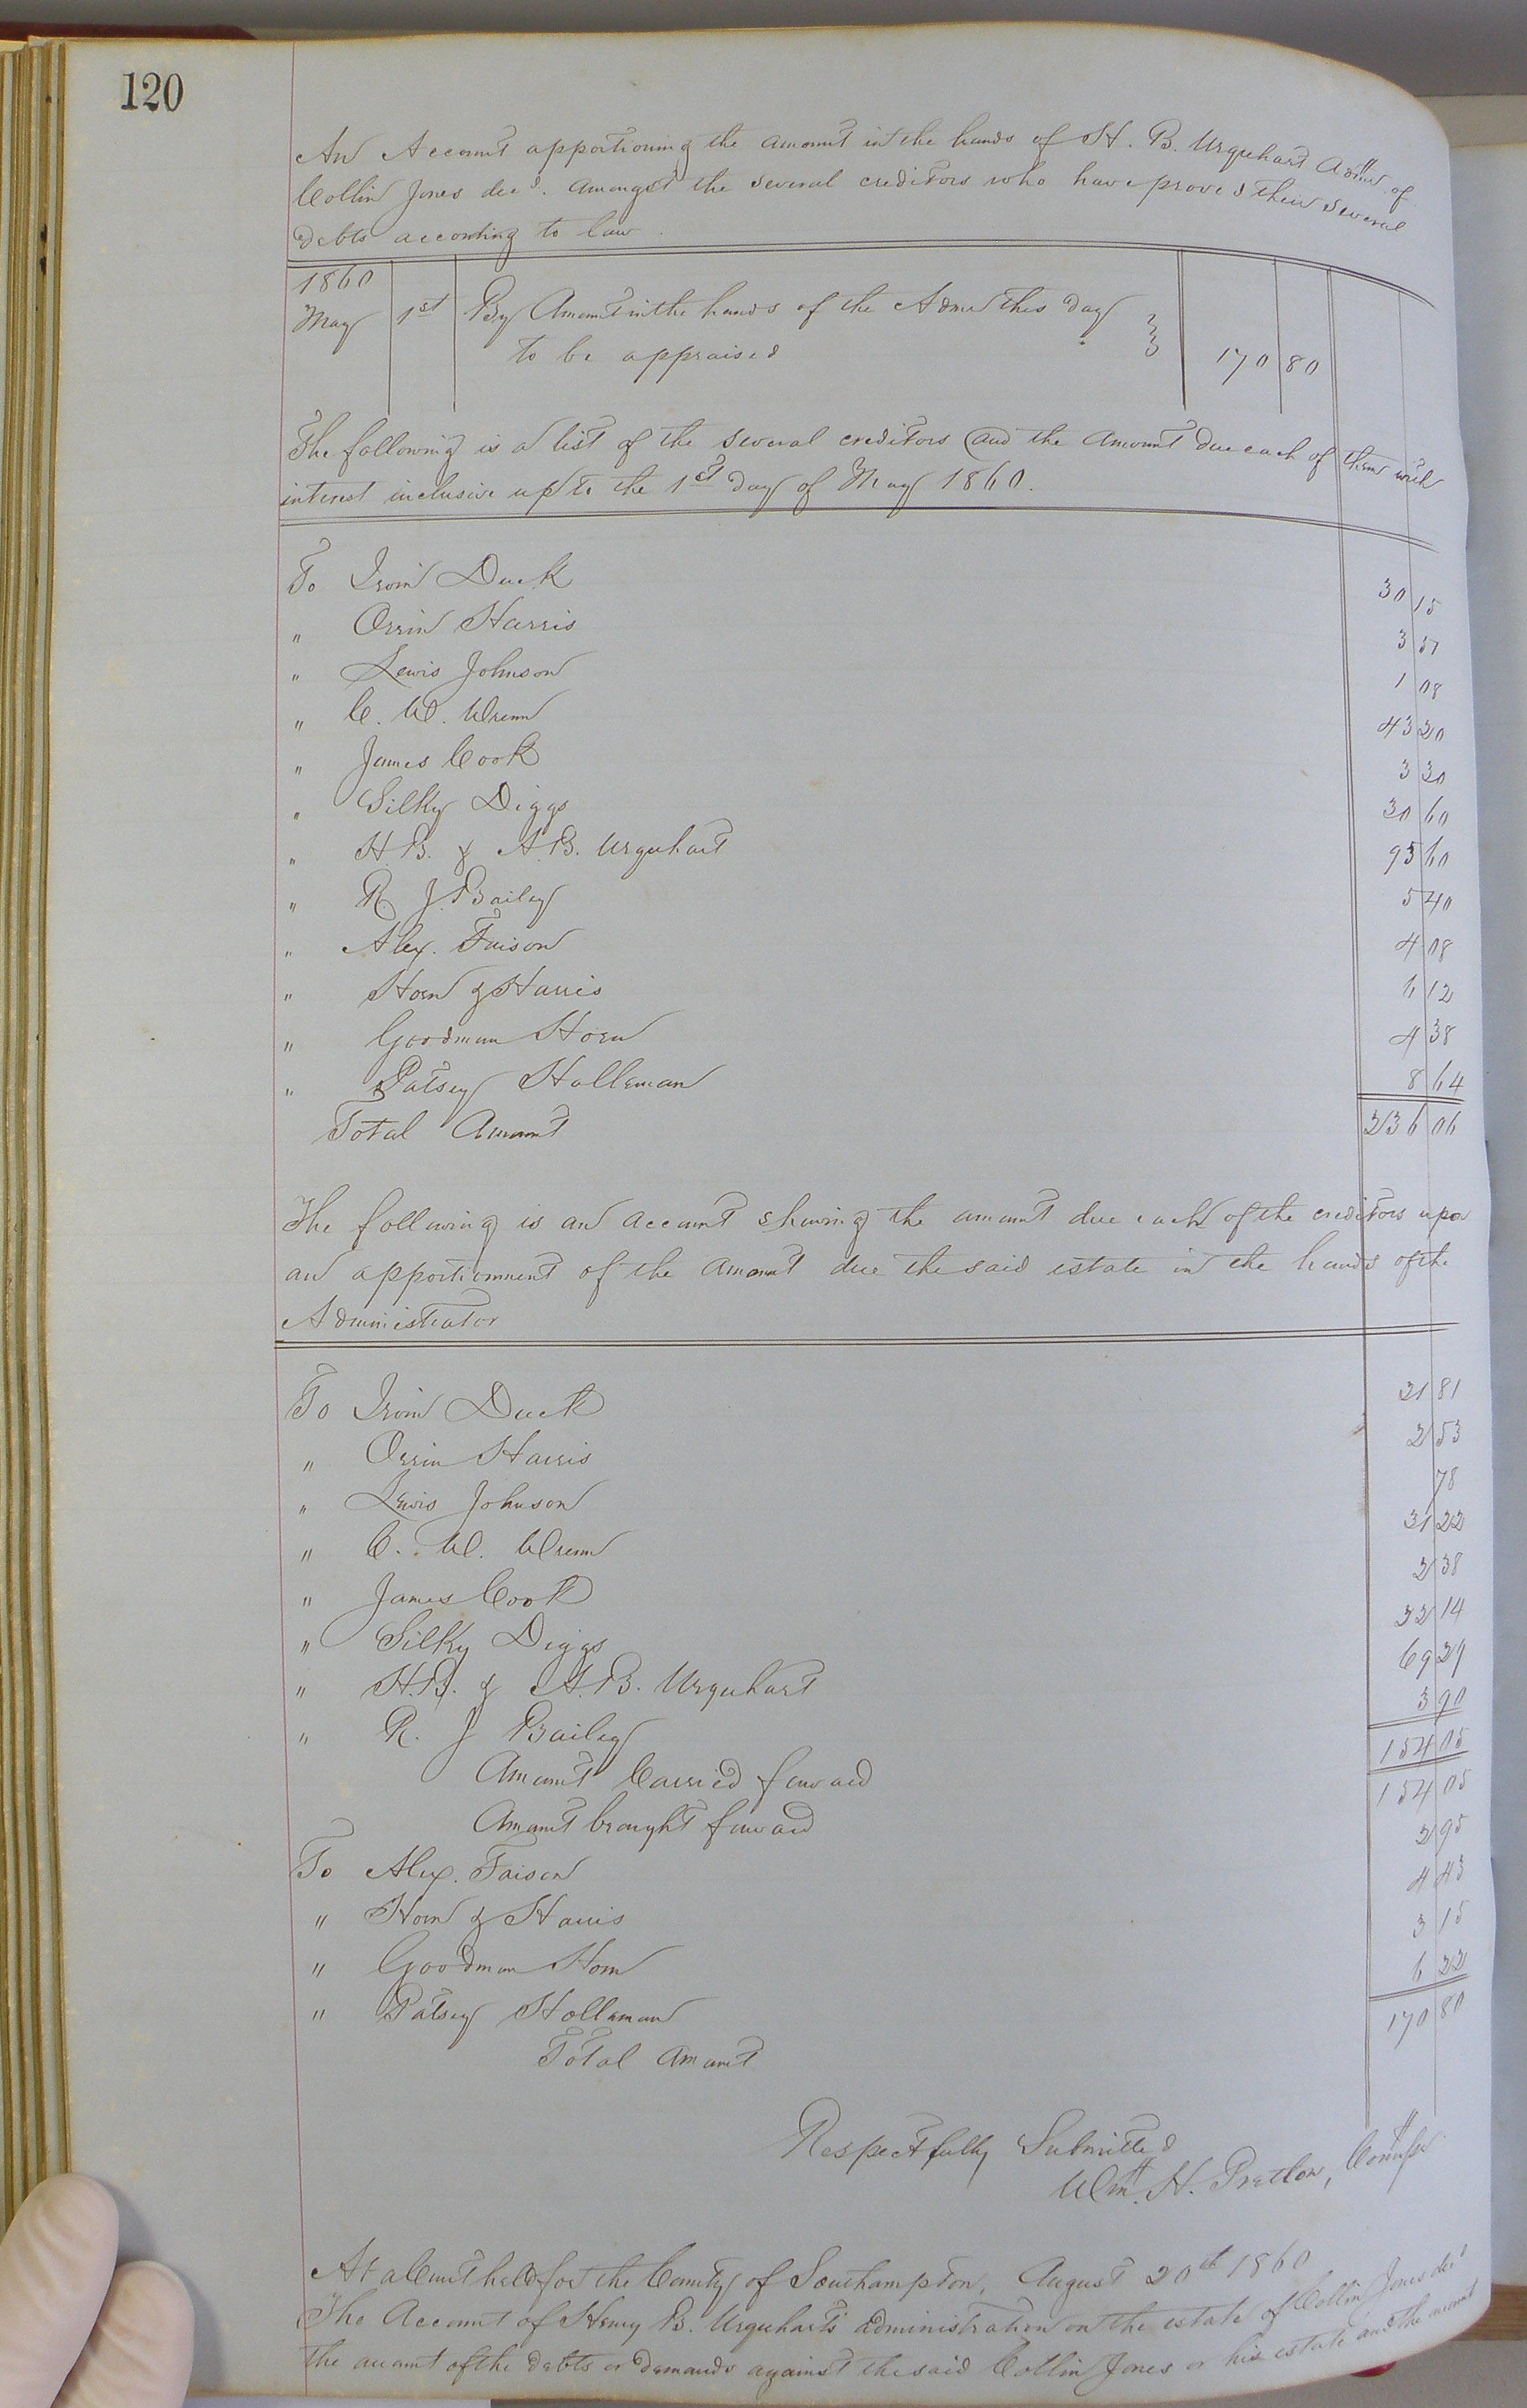 120
An Account apportioning the amount in the hands of H. B. Urquhart Admr of
Collin Jones decd. amongst the several creditors who have proved their several
debts according to law.
1860
May 1st By Amount in the hands of the Admr this day
to be appraised 170 80
The following is a list of the several creditors and the amount due each of them with
interest inclusive up to the 1st day of May 1860.
To Irvin Duck 30 15
" Orrin Harris 3 51
" Lewis Johnson 1 08
" C. W. Wrenn 43 20
" James Cook 3 30
" Silky Diggs 30 60
" H. B. & A. B. Urquhart 95 60
" R. J. Bailey 5 40
" Alex. Faison 4 08
" Horn & Harris 6 12
" Goodman Horn 4 38
" Patsey Holleman 8 64
Total Amount 236 06
The following is an account shewing the amount due each of the creditors upon
an apportionment of the amount due the said estate in the hands of the
Administrator
To Irvin Duck 21 81
" Orrin Harris 2 53
" Lewis Johnson 78
" C. W. Wrenn 31 22
" James Cook 2 38
" Silky Diggs 22 14
" H. B. & A. B. Urquhart 69 29
" R. J Bailey 3 90
Amount Carried forward 154 05
Amount brought forward 154 05
To Alex. Faison 2 95
" Horn & Harris 4 43
" Goodman Horn 3 15
" Patsey Holleman 6 22
Total Amount 170 80
Respectfully Submitted
Wm. H. Pretlow, Commr
At a Court held for the County of Southampton, August 20th 1860
The Account of Henry B. Urquhart's administration on the estate of Collin Jones decd
the amount of the debts or demands against the said Collin Jones or his estate and the amount